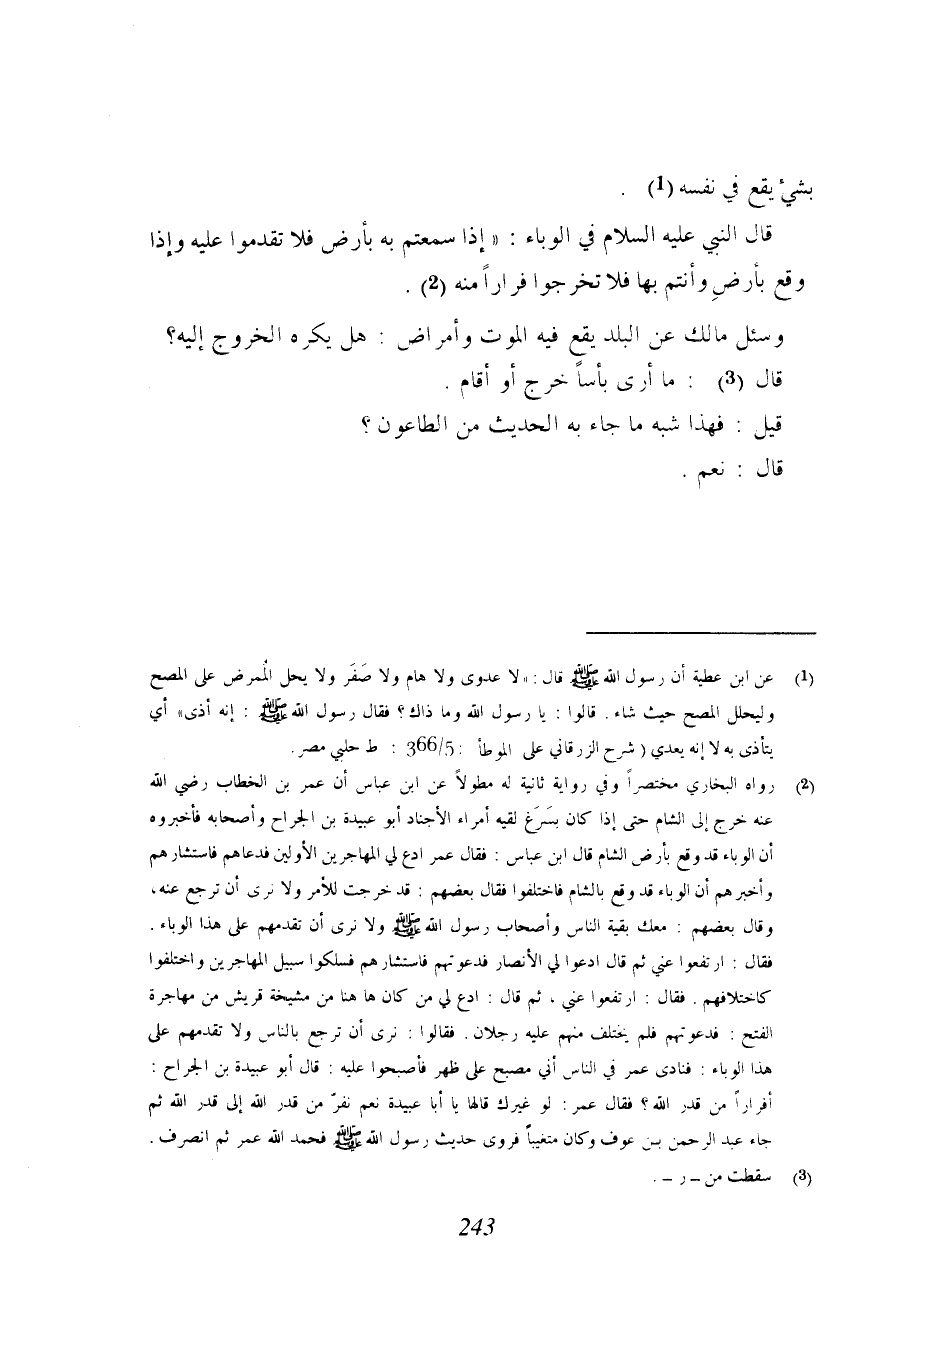 بشئ يقع في نفسه (1) .
قال النبي عليه السلام في الوباء : « إذا سمعتم به بأرض فلا تقدموا عليه وإذا
وقع بأرضٍ وأنتم بها فلا تخرجوا فراراً منه (2) .
وسئل مالك عن البلد يقع فيه الموت وأمراض : هل يكره الخروج إليه؟
قال (3) : ما أرى بأساً خرج أو أقام .
قيل : فهذا شبه ما جاء به الحديث من الطاعون ؟
قال : نعم .
(1) عن ابن عطية أن رسول الله ﷺ قال : «لا عدوى ولا هام ولا صَفَر ولا يحل الُممرض على المصح
وليحلل المصح حيث شاء . قالوا : يا رسول الله وما ذاك ؟ فقال رسول الله ﷺ : إنه أذى» أي
يتأذى به لا إنه يعدي ( شرح الزرقاني على الموطأ : 366/5 : ط حلبي مصر .
(2) رواه البخاري مختصراً وفي رواية ثانية له مطولاً عن ابن عباس أن عمر بن الخطاب رضي الله
عنه خرج إلى الشام حتى إذا كان بسَرَغ لقيه أمراء الأجناد أبو عبيدة بن الجراح وأصحابه فأخبروه
أن الوباء قد وقع بأرض الشام قال ابن عباس : فقال عمر ادع لي المهاجرين الأولين فدعاهم فاستشارهم
وأخبرهم أن الوباء قد وقع بالشام فاختلفوا فقال بعضهم : قد خرجت للأمر ولا نرى أن ترجع عنه،
وقال بعضهم : معك بقية الناس وأصحاب رسول الله ﷺ ولا نرى أن تقدمهم على هذا الوباء .
فقال : ارتفعوا عني ثم قال ادعوا لي الأنصار فدعوتهم فاستشارهم فسلكوا سبيل المهاجرين واختلفوا
كاختلافهم . فقال : ارتفعوا عني ، ثم قال : ادع لي من كان ها هنا من مشيخة قريش من مهاجرة
الفتح : فدعوتهم فلم يختلف منهم عليه رجلان . فقالوا : نرى أن ترجع بالناس ولا تقدمهم على
هذا الوباء : فنادى عمر في الناس أني مصبح على ظهر فأصبحوا عليه : قال أبو عبيدة بن الجراح :
أفراراً من قدر الله ؟ فقال عمر : لو غيرك قالها يا أبا عبيدة نعم نفرّ من قدر الله إلى قدر الله ثم
جاء عبد الرحمن بن عوف وكان متغيباً فروى حديث رسول الله ﷺ فحمد الله عمر ثم انصرف .
(3) سقطت من ـ ر ـ .
243